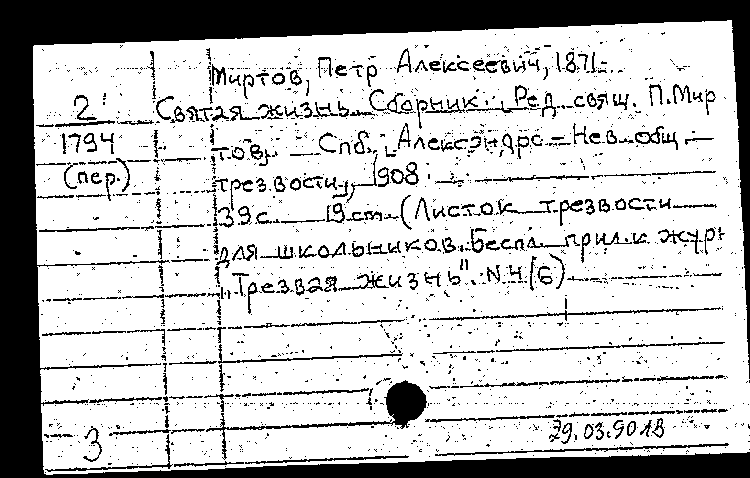 Миртов, Петр Алексеевич, 1871-
2
Святая жизнь. Сборник. [Ред. свящ. П. Мир
1794
тов]. Спб., [Александро-Нев. общ.
(пер.)
трезвости], 1908.
39 с. 19 cm. (Листок трезвости
для школьников. Беспл. прил. к журн
"Трезвая жизнь". N 4(6)
3
29.03.90